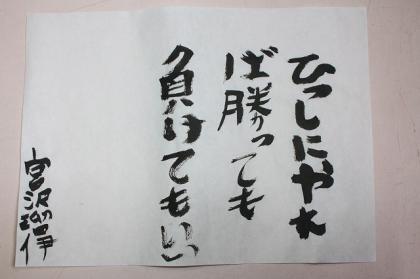 ひつしにやれ
ば勝っても
負けてもいい
宮沢